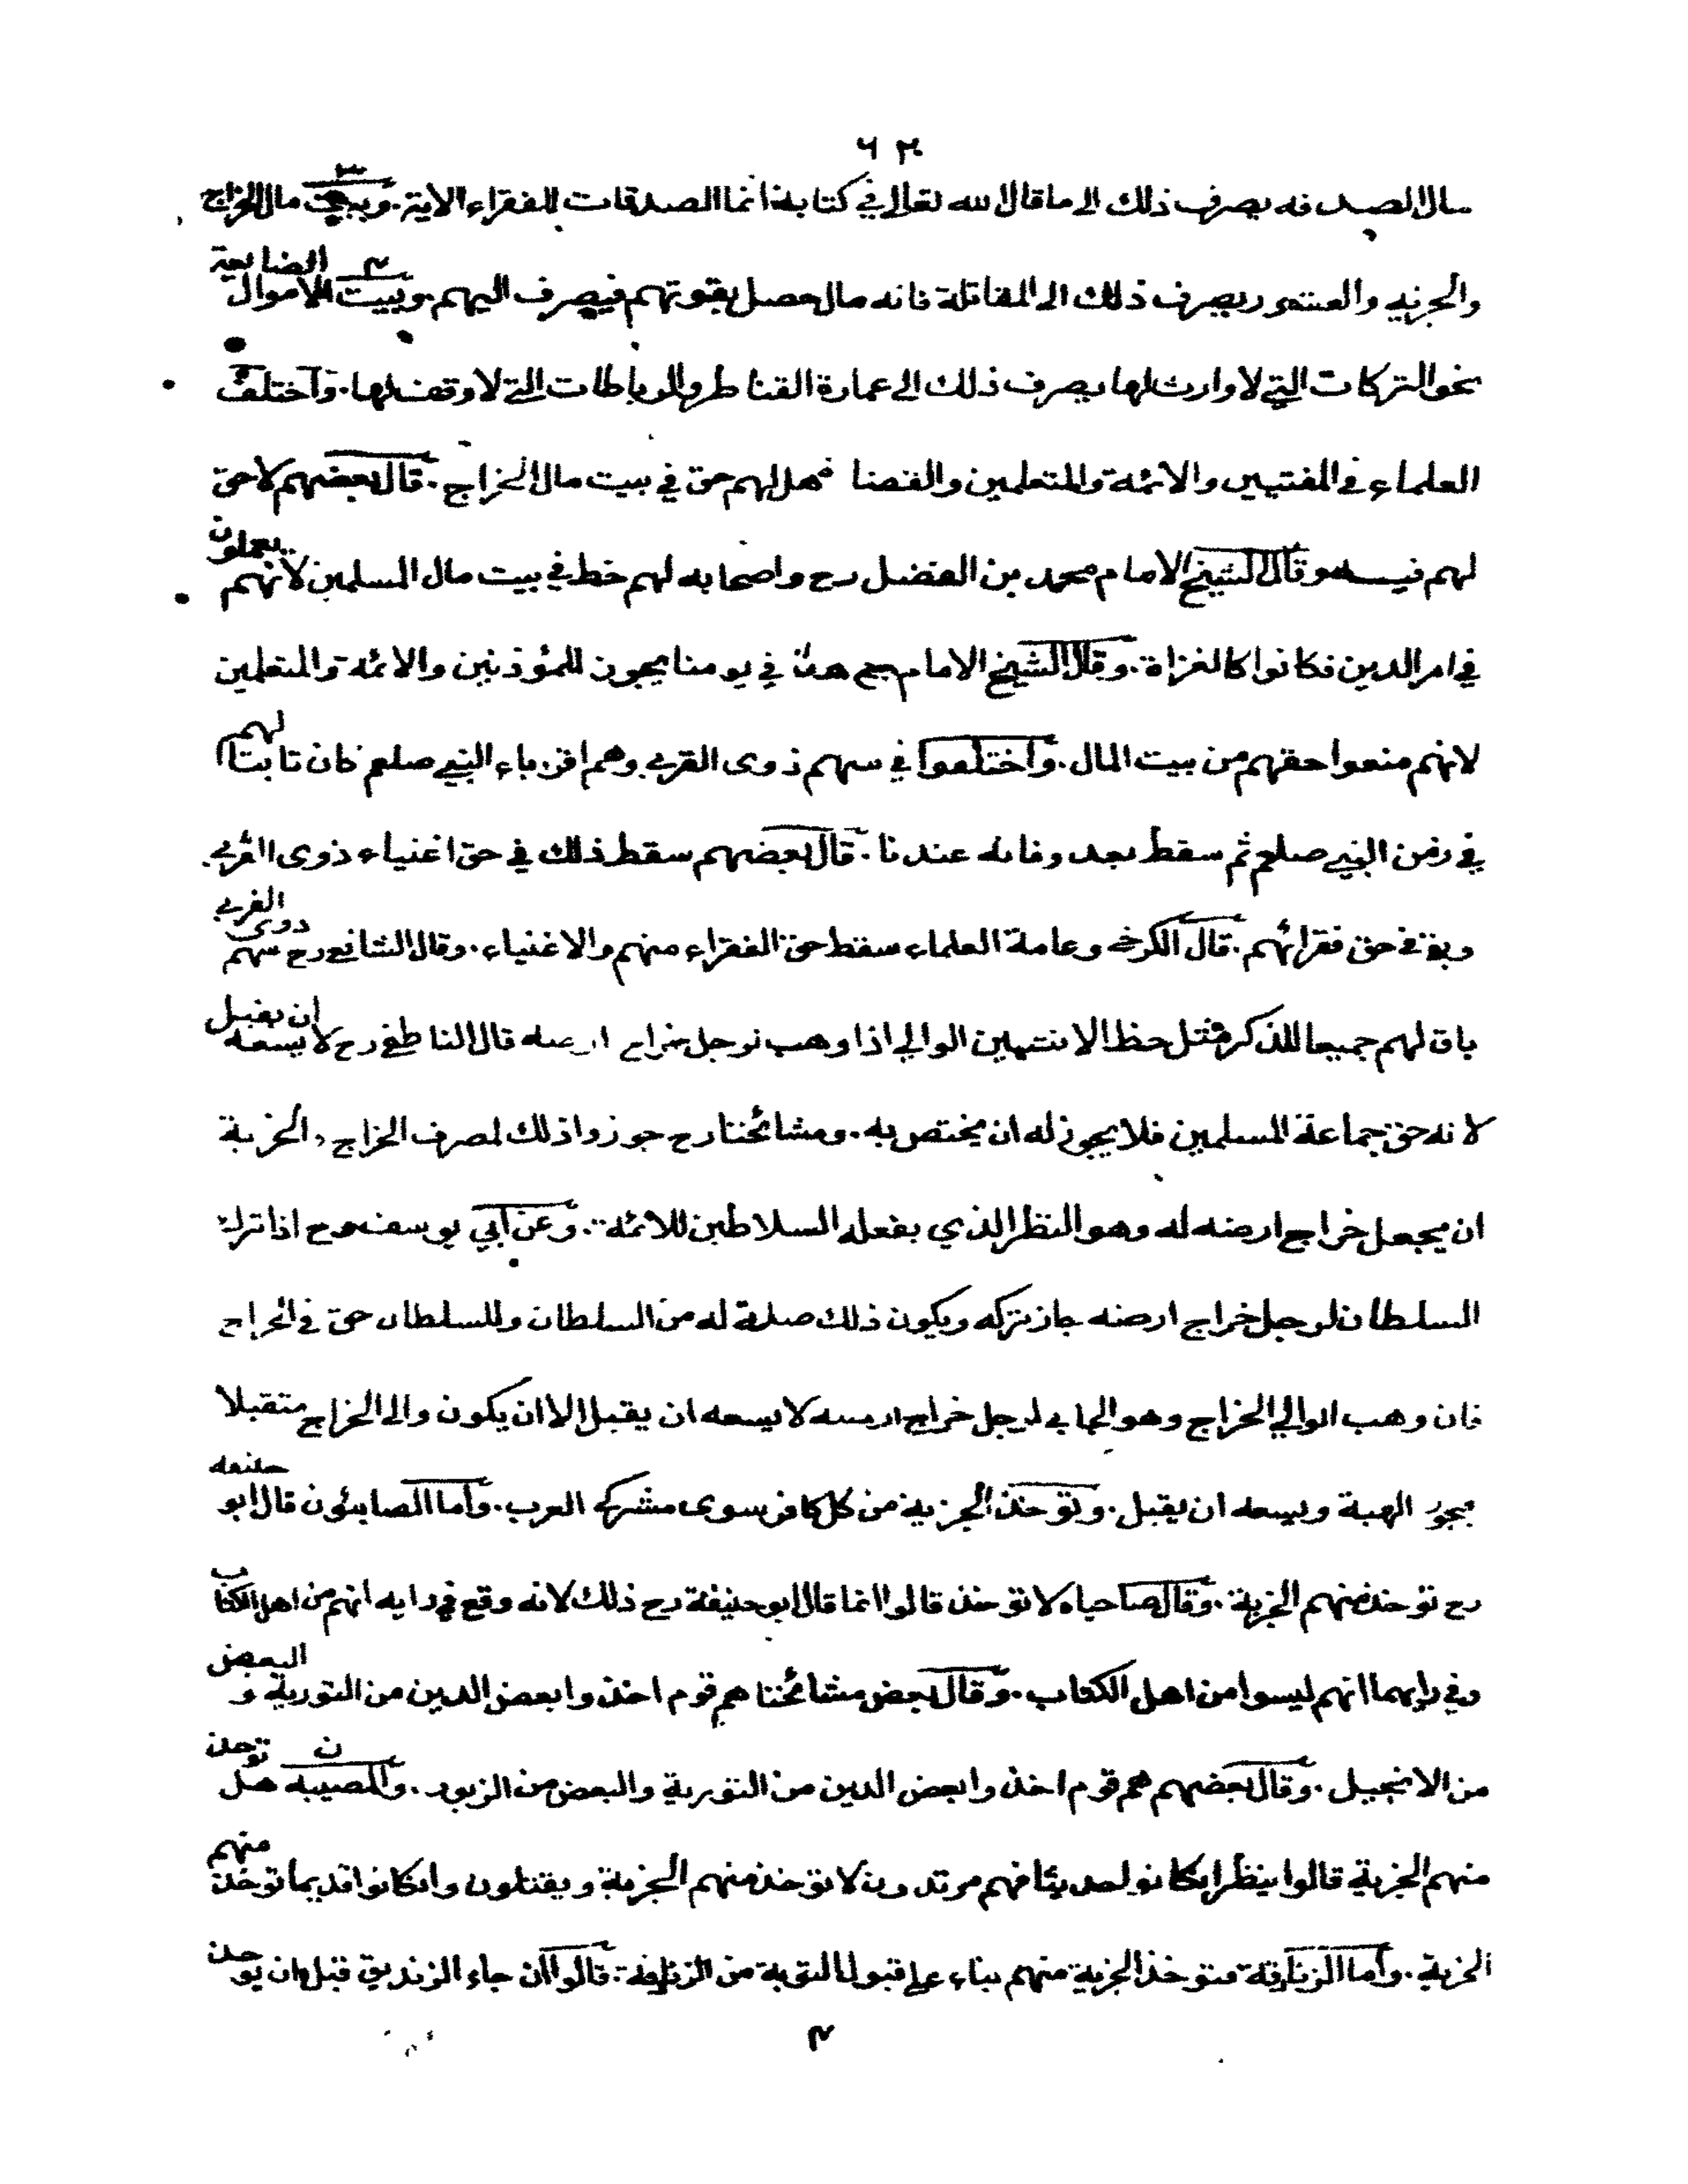 ٦٢
مال الصدقة يصرف ذلك الى ما قال الله تعالى في كتابه انما الصدقات للفقراء الاية. وبيت مال الخراج
والجزية والعشور يصرف ذلك الى المقاتلة فانه مال حصل بقوتهم فيصرف اليهم. وبيت الاموال الضايعة
نحو التركات التي لا وارث لها يصرف ذلك الى عمارة القناطر والرباطات التي لا وقف لها. واختلف
العلماء في المفتيين والائمة والمتعلمين والقضا فهل لهم حق في بيت مال الخراج. قال بعضهم لا حق
لهم فيه وقال الشيخ الامام محمد بن الفضل رح واصحابه لهم خط في بيت مال المسلمين لانهم يعملون
في امر الدين فكانوا كالغزاة. وقال الشيخ الامام في يومنا يجوز للمؤذنين والائمة والمتعلمين
لانهم منعوا حقهم من بيت المال. واختلفوا في سهم ذوى القربى وهم اقرباء النبي صلعم كان ثابتا لهم
في زمن النبي صلعم ثم سقط بعد وفاته عندنا. قال بعضهم سقط ذلك في حق اغنياء ذوى القربى.
وبقى في حق فقرائهم. قال الكرخى وعامة العلماء سقط حق الفقراء منهم والاغنياء. وقال الشافعى رح سهم ذوى القربى
باق لهم جميعا للذكر مثل حظ الانثيين الوالي اذا وهب لرجل خراج ارضه قال الناطفى رح لا يسعه ان يقبل
لانه حق جماعة المسلمين فلا يجوز له ان يختص به. ومشائخنا رح جوزوا ذلك لمصرف الخراج والجزية
ان يجعل خراج ارضه له وهو النظر الذي يفعله السلاطين للائمة. وعن ابي يوسف رح اذا ترك
السلطان لرجل خراج ارضه جاز تركه ويكون ذلك صلة له من السلطان وللسلطان حق في الخراج
فان وهب الوالي الخراج وهو الجابي لرجل خراج ارضه لا يسعه ان يقبل الا ان يكون والى الخراج متقبلا
يجوز الهبة ويسعه ان يقبل. وتوخذ الجزية من كل كافر سوى مشركى العرب. واما الصابئون قال ابو حنيفه
رح توخذ منهم الجزية. وقال صاحباه لا توخذ قالوا انما قال ابو حنيفة رح ذلك لانه وقع في رايه انهم من اهل الكتاب
وفي رايهما انهم ليسوا من اهل الكتاب. وقال بعض مشائخنا هم قوم اخذوا بعض الدين من التورية و البعض
من الانجيل. وقال بعضهم هم قوم اخذوا بعض الدين من التورية والبعض من الزبور. هل توخذ
منهم الجزية قالوا ينظر ان كانوا حديثا فهم مرتدون لا توخذ منهم الجزية ويقتلون وان كانوا قديما توخذ منهم
الجزية. واما الزنادقة فتوخذ الجزية منهم بناء على قبول التوبة من الزنادقة. قالوا ان جاء الزنديق قبل ان يوخذ